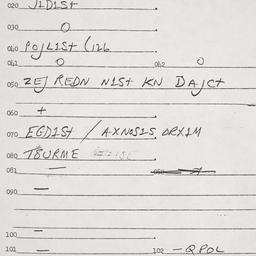 020 JID1St
030 O
040 POJLISt (126
041 O 042 O
050 ZEJ REDN N1St KN DAJCt
060 +
070 EGD1St / AXNOS1S ORX1M
080 TBURME
081 —
090 —
100 —
101 — 102 — QPOL